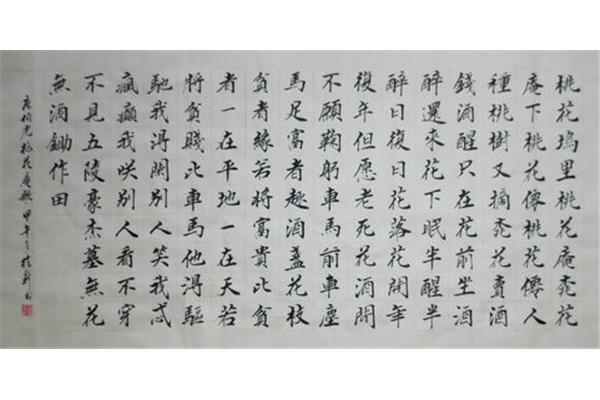 桃花塢里桃花庵桃花
庵下桃花僊桃花僊人
種桃樹又摘桃花賣酒
錢酒醒只在花前坐酒
醉還來花下眠半醒半
醉日復日花落花開年
復年但愿老死花酒間
不願鞠躬車馬前車塵
馬足富者趣酒盞花枝
貧者緣若將富貴比貧
者一在平地一在天若
將貧賤比車馬他得驅
馳我得閑別人笑我忒
瘋癲我咲別人看不穿
不見五陵豪杰墓無花
無酒鋤作田
唐伯虎桃花庵歌 甲午